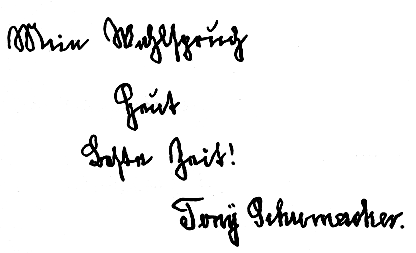 Mein Wahlspruch
Heut
beste Zeit!
Tony Schumacher.